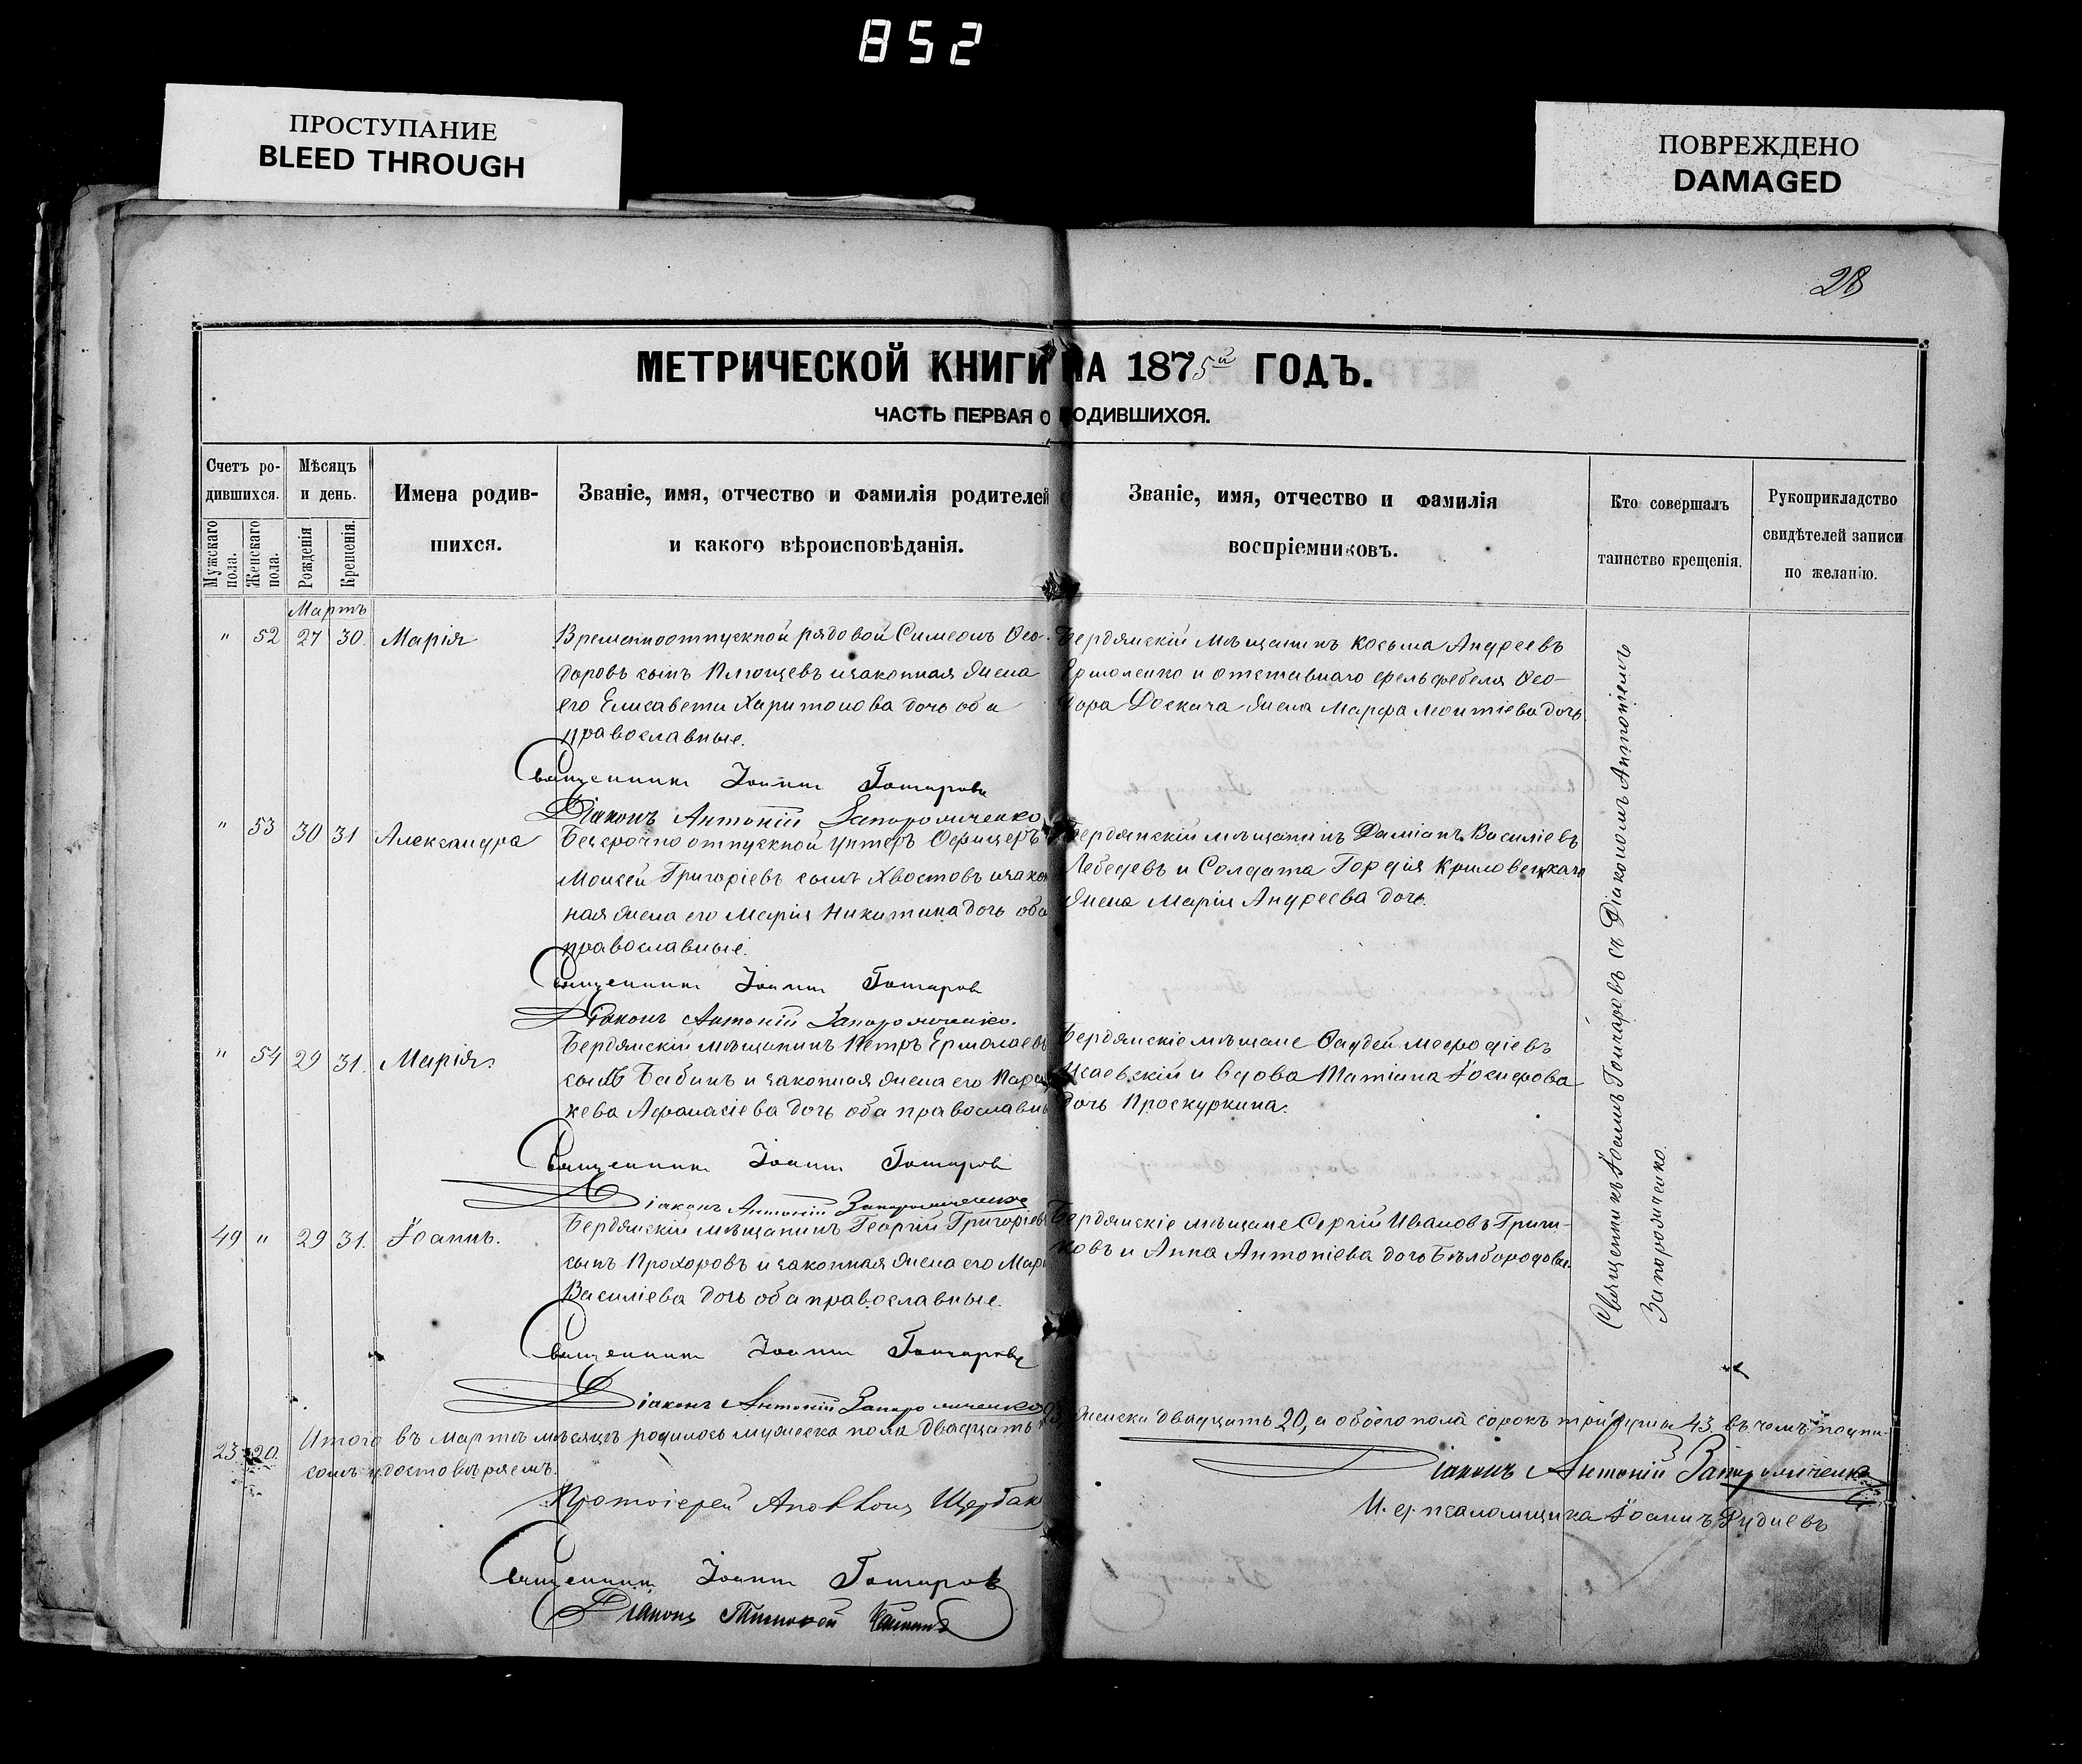 852
ПРОСТУПАНИЕ
BLEED THROUGH
ПОВРЕЖДЕНО
DAMAGED
28
МЕТРИЧЕСКОЙ КНИГИ НА 1875й ГОДЪ.
ЧАСТЬ ПЕРВАЯ О РОДИВШИХСЯ.
Счетъ ро-
дившихся.
Мужскаго пола.
Женскаго пола.
Мѣсяцъ
и день.
Рожденія
Крещенія.
Имена родив-
шихся.
Званіе, имя, отчество и фамилія родителей
и какого вѣроисповѣданія.
Званіе, имя, отчество и фамилія
воспріемниковъ.
Кто совершалъ
таинство крещенія.
Рукоприкладство
свидѣтелей записи
по желанію.
Мартъ
" 52 27 30. Марія
Временноотпускной рядовой Симеонъ Ѳео-
доровъ сынъ Плющевъ и законная жена
его Елисавета Харитонова дочь оба
православные.
Бердянскій мѣщанинъ Косьма Андреевъ
Ермоленко и отставнаго фельдфебеля Ѳео-
дора Доскача жена Марфа Леонтіева дочь.
Священникъ Іоаннъ Гончаровъ
Діаконъ Антоній Запорожченко
" 53 30 31 Александра
Безсрочно отпускной унтеръ Офицеръ
Моисей Григоріевъ сынъ Хвостовъ и закон
ная жена его Марія Никитина дочь оба
православные.
Бердянскій мѣщанинъ Даміанъ Василіевъ
Лебедевъ и Солдата Гордія Криловецкаго
жена Марія Андреева дочь.
Священникъ Іоаннъ Гончаровъ
Діаконъ Антоній Запорожченко.
" 54 29 31. Марія.
Бердянскій мѣщанинъ Петръ Ермолаевъ
сынъ Бабинъ и законная жена его Парас
кева Афанасіева дочь оба православные
Бердянскіе мѣщане Ѳаддей Меѳодіевъ
Исаевскій и вдова Татіана Іосифова
дочь Проскуркина.
Священникъ Іоаннъ Гончаровъ
Діаконъ Антоній Запорожченко
49 " 29 31. Іоаннъ.
Бердянскій мѣщанинъ Георгій Григоріевъ
сынъ Прохоровъ и законная жена его Марія
Василіева дочь оба православные.
Бердянскіе мѣщане Сергій Ивановъ
и Анна Антоніева дочь Бѣлбородова.
Священникъ Іоаннъ Гончаровъ
Діаконъ Антоній Запорожченко
Священникъ Іоаннъ Гончаровъ съ Діакономъ Антоніемъ
Запорожченко.
23 20. Итого въ Мартѣ мѣсяцѣ родилось мужеска пола двадцать женска двадцать 20, а обоего пола сорокъ три души 43. въ чемъ подпи-
сомъ удостовѣряемъ.
Протоіерей Щербак
Діаконъ Антоній Запорожченко
И. д. псаломщика Іоаннъ Рудневъ
Священникъ Іоаннъ Гончаровъ
Діаконъ Тимофей